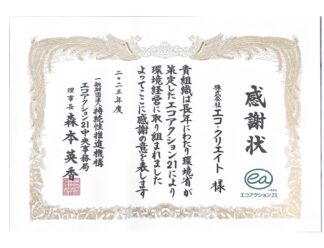 感謝状
株式会社エコ・クリエイト 様
貴組織は長年にわたり環境省が
策定したエコアクション21により
環境経営に取り組まれました
よってここに感謝の意を表します
二〇二三年度
一般財団法人 持続性推進機構
エコアクション21中央事務局
理事長 森本英香
ea
エコアクション21